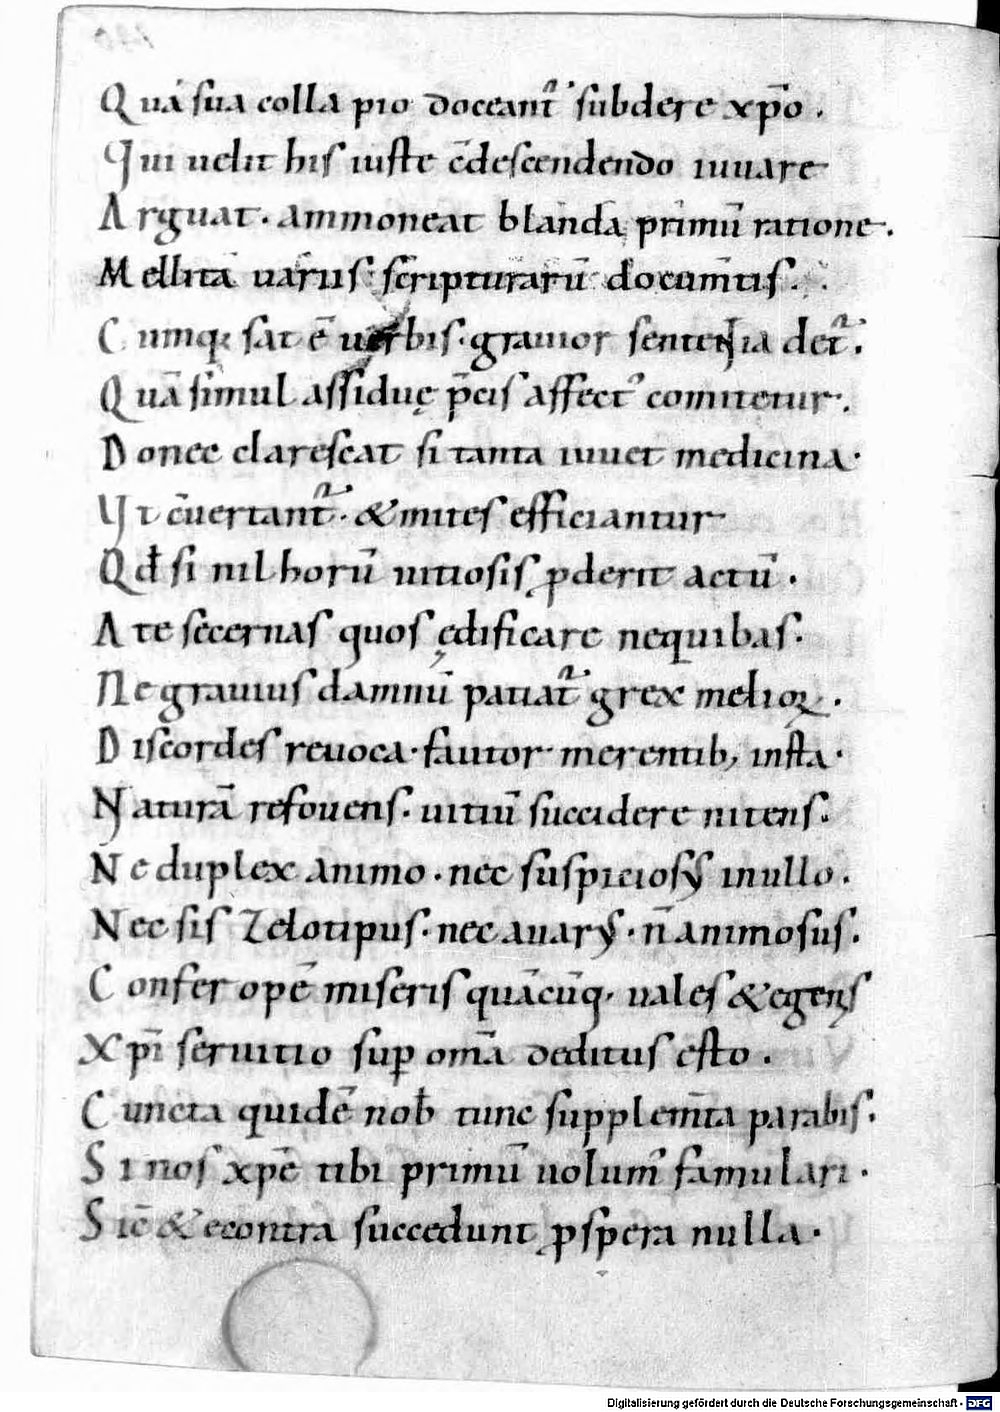 Quā sua colla pio doceant᷑ subdere xp̄o .
Qui uelit his iuste c̄descendendo iuuare
Arguat . ammoneat blanda primū ratione .
Mellita uariis scripturarū docum̄tis .
Cumq; sat ē uerbis . grauior sententia det᷑ .
Quā simul assiduę p̄cis affect᷒ comitetur .
Donec clarescat si tanta iuuet medicina .
Ut c̄uertant᷑ . & mites efficiantur
Qđ si nil horū uitiosis ꝓderit actū .
A te secernas quos ędificare nequibas .
Ne grauius damnū patiat᷑ grex melioꝝ .
Discordes reuoca . fautor merentib; insta .
Naturā refouens . uitiū succidere nitens .
Ne duplex animo . nec suspicios᷒ in ullo .
Nec sis zelotipus . nec auar᷒ . n̄ animosus .
Confer opē miseris quācūq; uales & egens
Xp̄i seruitio sup̲ om̄a deditus esto .
Cuncta quidē nob̄ tunc supplem̄ta parabis .
Si nos xp̄e tibi primū uolum᷒ famulari .
Sic̄ & econtra succedunt ꝓspera nulla .
Digitalisierung gefördert durch die Deutsche Forschungsgemeinschaft - DFG